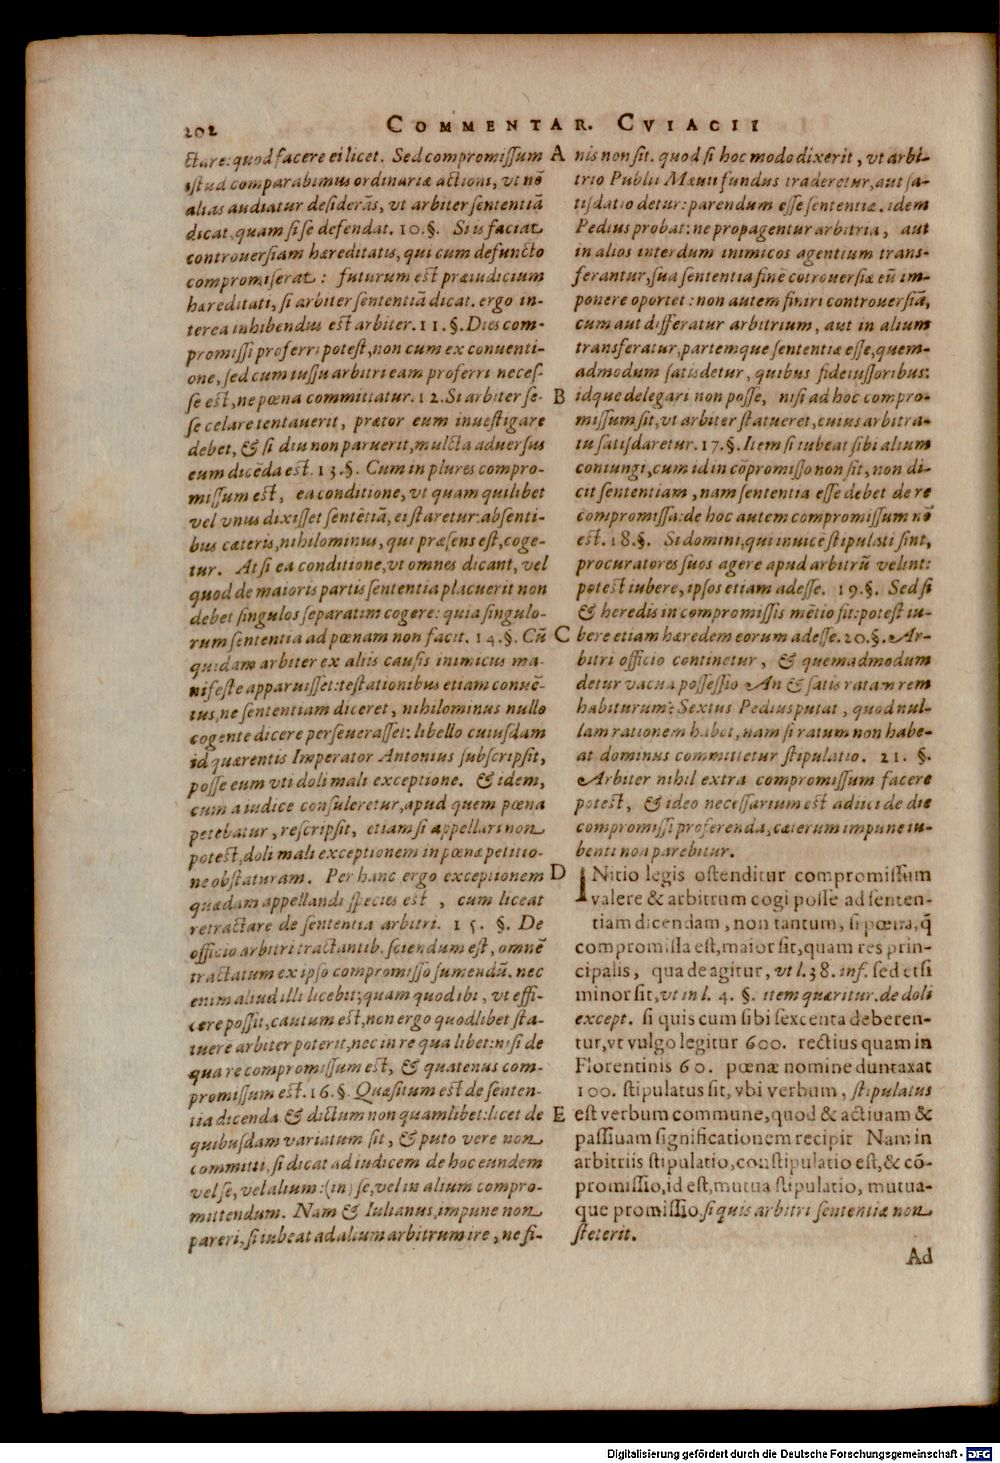 202 COMMENTAR. CVIACII
ctare: quod facere ei licet. Sed compromissum
istud comparabimus ordinariæ actioni, vt nõ
alias audiatur desiderãs, vt arbiter sententiã
dicat, quam si se defendat. 10.§. Si is faciat
controuersiam hæreditatis, qui cum defuncto
compromiserat: futurum est præiudicium
hæreditati, si arbiter sententiã dicat. ergo in-
terea inhibendus est arbiter. 11.§. Dies com-
promissi proferri potest, non cum ex conuenti-
one, sed cum iussu arbitri eam proferri neces-
se est, ne pœna committatur. 12. Si arbiter se-
se celare tentauerit, prætor eum inuestigare
debet, & si diu non paruerit, mulcta aduersus
eum dicẽda est. 13.§. Cum in plures compro-
missum est, ea conditione, vt quam quilibet
vel vnus dixisset sentẽtiã, ei staretur: absenti-
bus cæteris, nihilominus, qui præsens est, coge-
tur. At si ea conditione, vt omnes dicant, vel
quod de maioris partis sententia placuerit non
debet singulos separatim cogere: quia singulo-
rum sententia ad pœnam non facit. 14.§. Cũ
quidam arbiter ex aliis causis inimicus ma-
nifeste apparuisset: testationibus etiam conuẽ-
tus, ne sententiam diceret, nihilominus nullo
cogente dicere perseuerasset: libello cuiusdam
id quærentis Imperator Antonius subscripsit,
posse eum vti doli mali exceptione. & idem,
cum a iudice consuleretur, apud quem pœna
petebatur, rescripsit, etiam si appellari non
potest, doli mali exceptionem in pœnæ petitio-
ne obstaturam. Per hanc ergo exceptionem
quædam appellandi species est, cum liceat
retractare de sententia arbitri. 15. §. De
officio arbitri tractantib. sciendum est, omnẽ
tractatum ex ipso compromisso sumendũ. nec
enim aliud illi licebit; quam quod ibi, vt effi-
cere possit, cautum est, non ergo quodlibet sta-
tuere arbiter poterit, nec in re qua libet: nisi de
qua re compromissum est, & quatenus com-
promissum est. 16.§. Quæsitum est de senten-
tia dicenda & dictum non quamlibet: licet de
quibusdam variatum sit, & puto vere non
committi, si dicat ad iudicem de hoc eundem
vel se, vel alium: (in) se, vel in alium compro-
mittendum. Nam & Iulianus, impune non
pareri, si iubeat ad alium arbitrum ire, ne fi-
A nis non sit. quod si hoc modo dixerit, vt arbi-
trio Publii Mæuii fundus traderetur, aut sa-
tisdatio detur: parendum esse sententiæ. idem
Pedius probat: ne propagentur arbitria, aut
in alios interdum inimicos agentium trans-
ferantur, sua sententia finẽ cõtrouersiæ eũ im-
ponere oportet: non autem finiri controuersiã,
cum aut differatur arbitrium, aut in alium
transferatur, partemque sententiæ esse, quem-
admodum satisdetur, quibus fideiussoribus:
B idque delegari non posse, nisi ad hoc compro-
missum sit, vt arbiter statueret, cuius arbitra-
tu satisdaretur. 17.§. Item si iubeat sibi alium
coniungi, cum id in cõpromisso non sit, non di-
cit sententiam, nam sententia esse debet de re
compromissa: de hoc autem compromissum nõ
est. 18.§. Si domini, qui inuicẽ stipulati sint,
procuratores suos agere apud arbitrũ velint:
potest iubere, ipsos etiam adesse. 19.§. Sed si
& heredis in compromissis mẽtio fit: potest iu-
C bere etiam hæredem eorum adesse. 20.§. Ar-
bitri officio continetur, & quemadmodum
detur vacua possessio An & satis ratam rem
habiturum? Sextus Pedius putat, quod nul-
lam rationem habet, nam si ratum non habe-
at dominus committetur stipulatio. 21. §.
Arbiter nihil extra compromissum facere
potest, & ideo necessarium est adiici de die
compromissi proferenda, cæterum impune iu-
benti non parebitur.
D INitio legis ostenditur compromissum
valere & arbitrum cogi posse ad senten-
tiam dicendam, non tantum, si pœna, q̃
compromissa est, maior sit, quam res prin-
cipalis, qua de agitur, vt l. 38. inf. sed etsi
minor sit, vt in l. 4. §. item quæritur. de doli
except. si quis cum sibi sexcenta deberen-
tur, vt vulgo legitur 600. rectius quam in
Florentinis 60. pœnæ nomine duntaxat
100. stipulatus sit, vbi verbum, stipulatus
E est verbum commune, quod & actiuam &
passiuam significationem recipit Nam in
arbitriis stipulatio, constipulatio est, & cõ-
promissio, id est, mutua stipulatio, mutua-
que promissio, si quis arbitri sententiæ non
steterit.
Ad
Digitalisierung gefördert durch die Deutsche Forschungsgemeinschaft - DFG